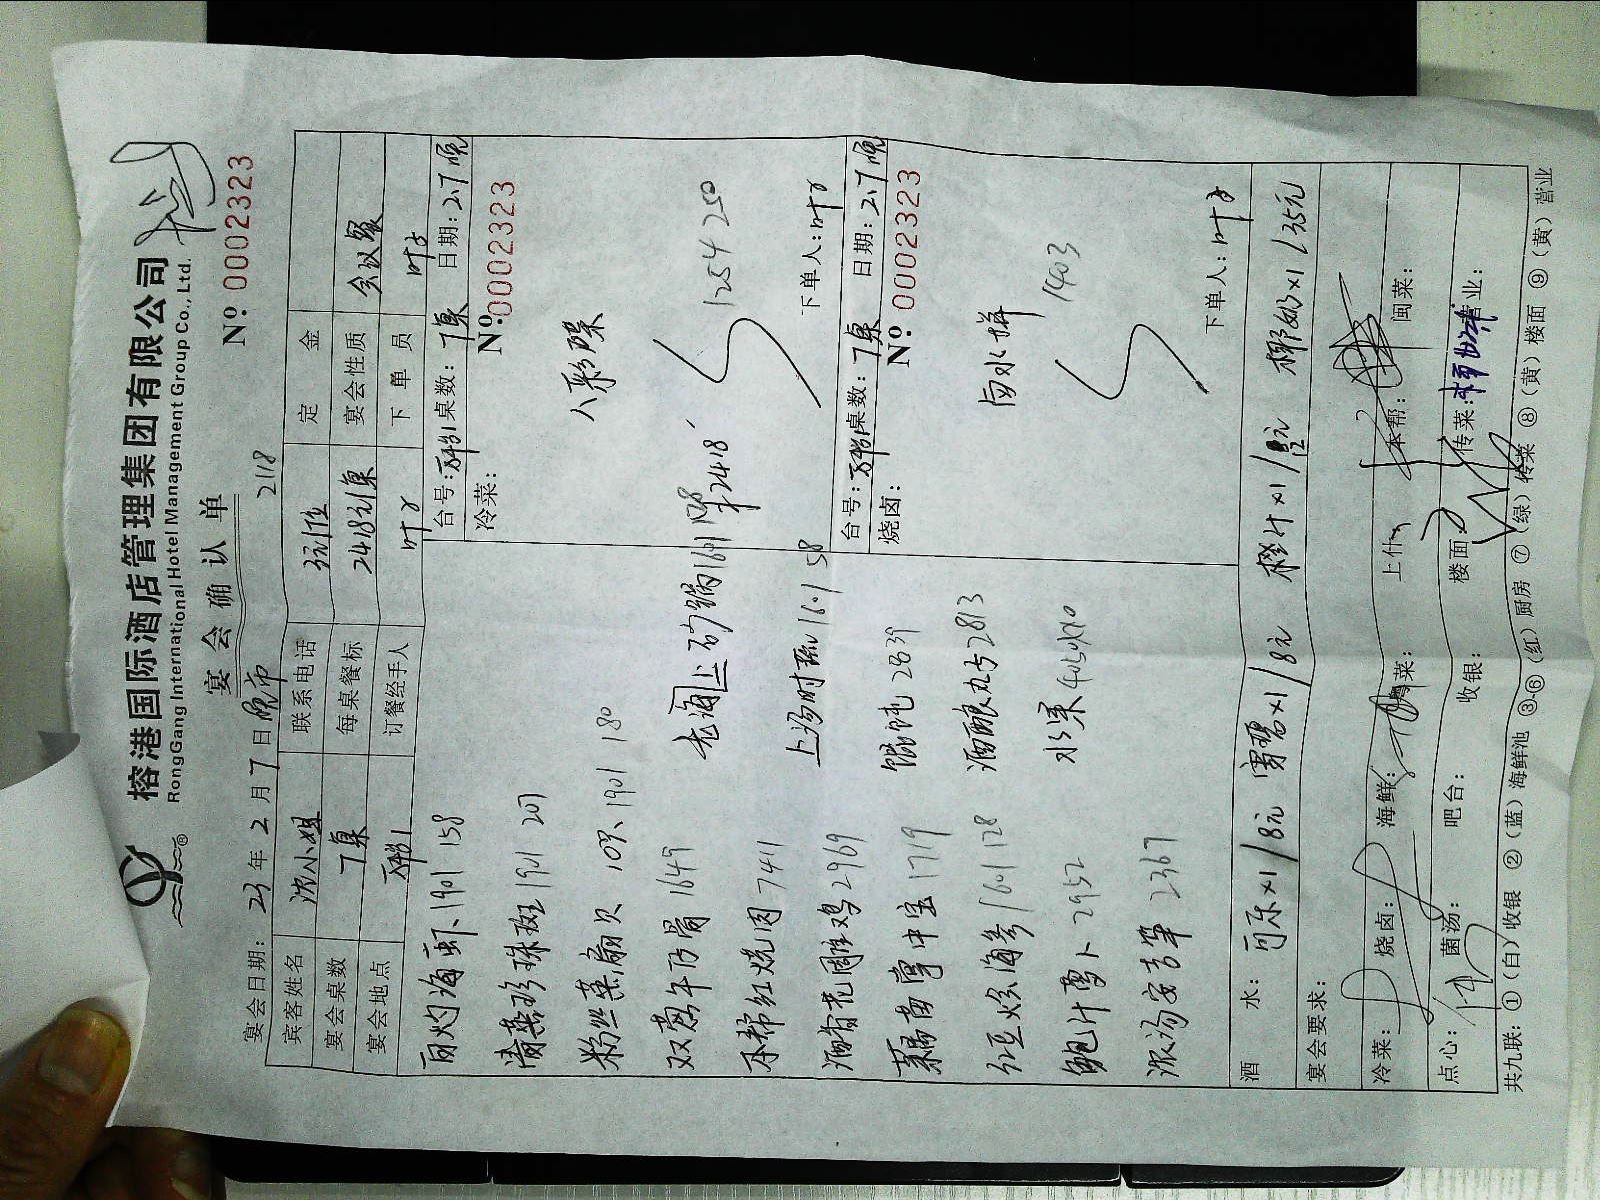 榕港国际酒店管理集团有限公司
RongGang International Hotel Management Group Co., Ltd.
宴会确认单
№ 0002323
宴会日期: 23 年 2 月 7 日 晚市 2118
宾客姓名 沈小姐 联系电话 定金
宴会桌数 7桌 每桌餐标 2418元/桌 宴会性质 会议餐
宴会地点 订餐经手人 叶 下单员 叶
台号: 桌数: 7桌 日期: 2.7晚
冷菜: № 0002323
八彩碟
1254 250
下单人: 叶
台号: 桌数: 7桌 日期: 2.7晚
烧卤: № 0002323
卤水拼 1403
下单人: 叶
白灼海虾 1901 158
清蒸珍珠斑 1901 201
粉丝蒸扇贝 1901 180
双葱牛仔骨 1649
本帮红烧肉 7411
酒香花雕鸡 2969
1719
海参 1601 128
鲍汁萝卜 2952
浓汤 2367
老滷 砂锅 1601 198
2418
上汤时蔬 1601 58
馄饨 2839
酒酿丸子 2813
水果
酒水: 可乐x1/8元 雪碧x1/8元 橙汁x1/ 元 椰奶x1/35元
宴会要求:
冷菜: 烧卤: 海鲜: 菜: 上什: 本帮: 闽菜:
点心: 菌汤: 吧台: 收银: 楼面: 传菜: 营业:
共九联: ①(白)收银 ②(蓝)海鲜池 ③-⑥(红)厨房 ⑦(绿)传菜 ⑧(黄)楼面 ⑨(黄)营业